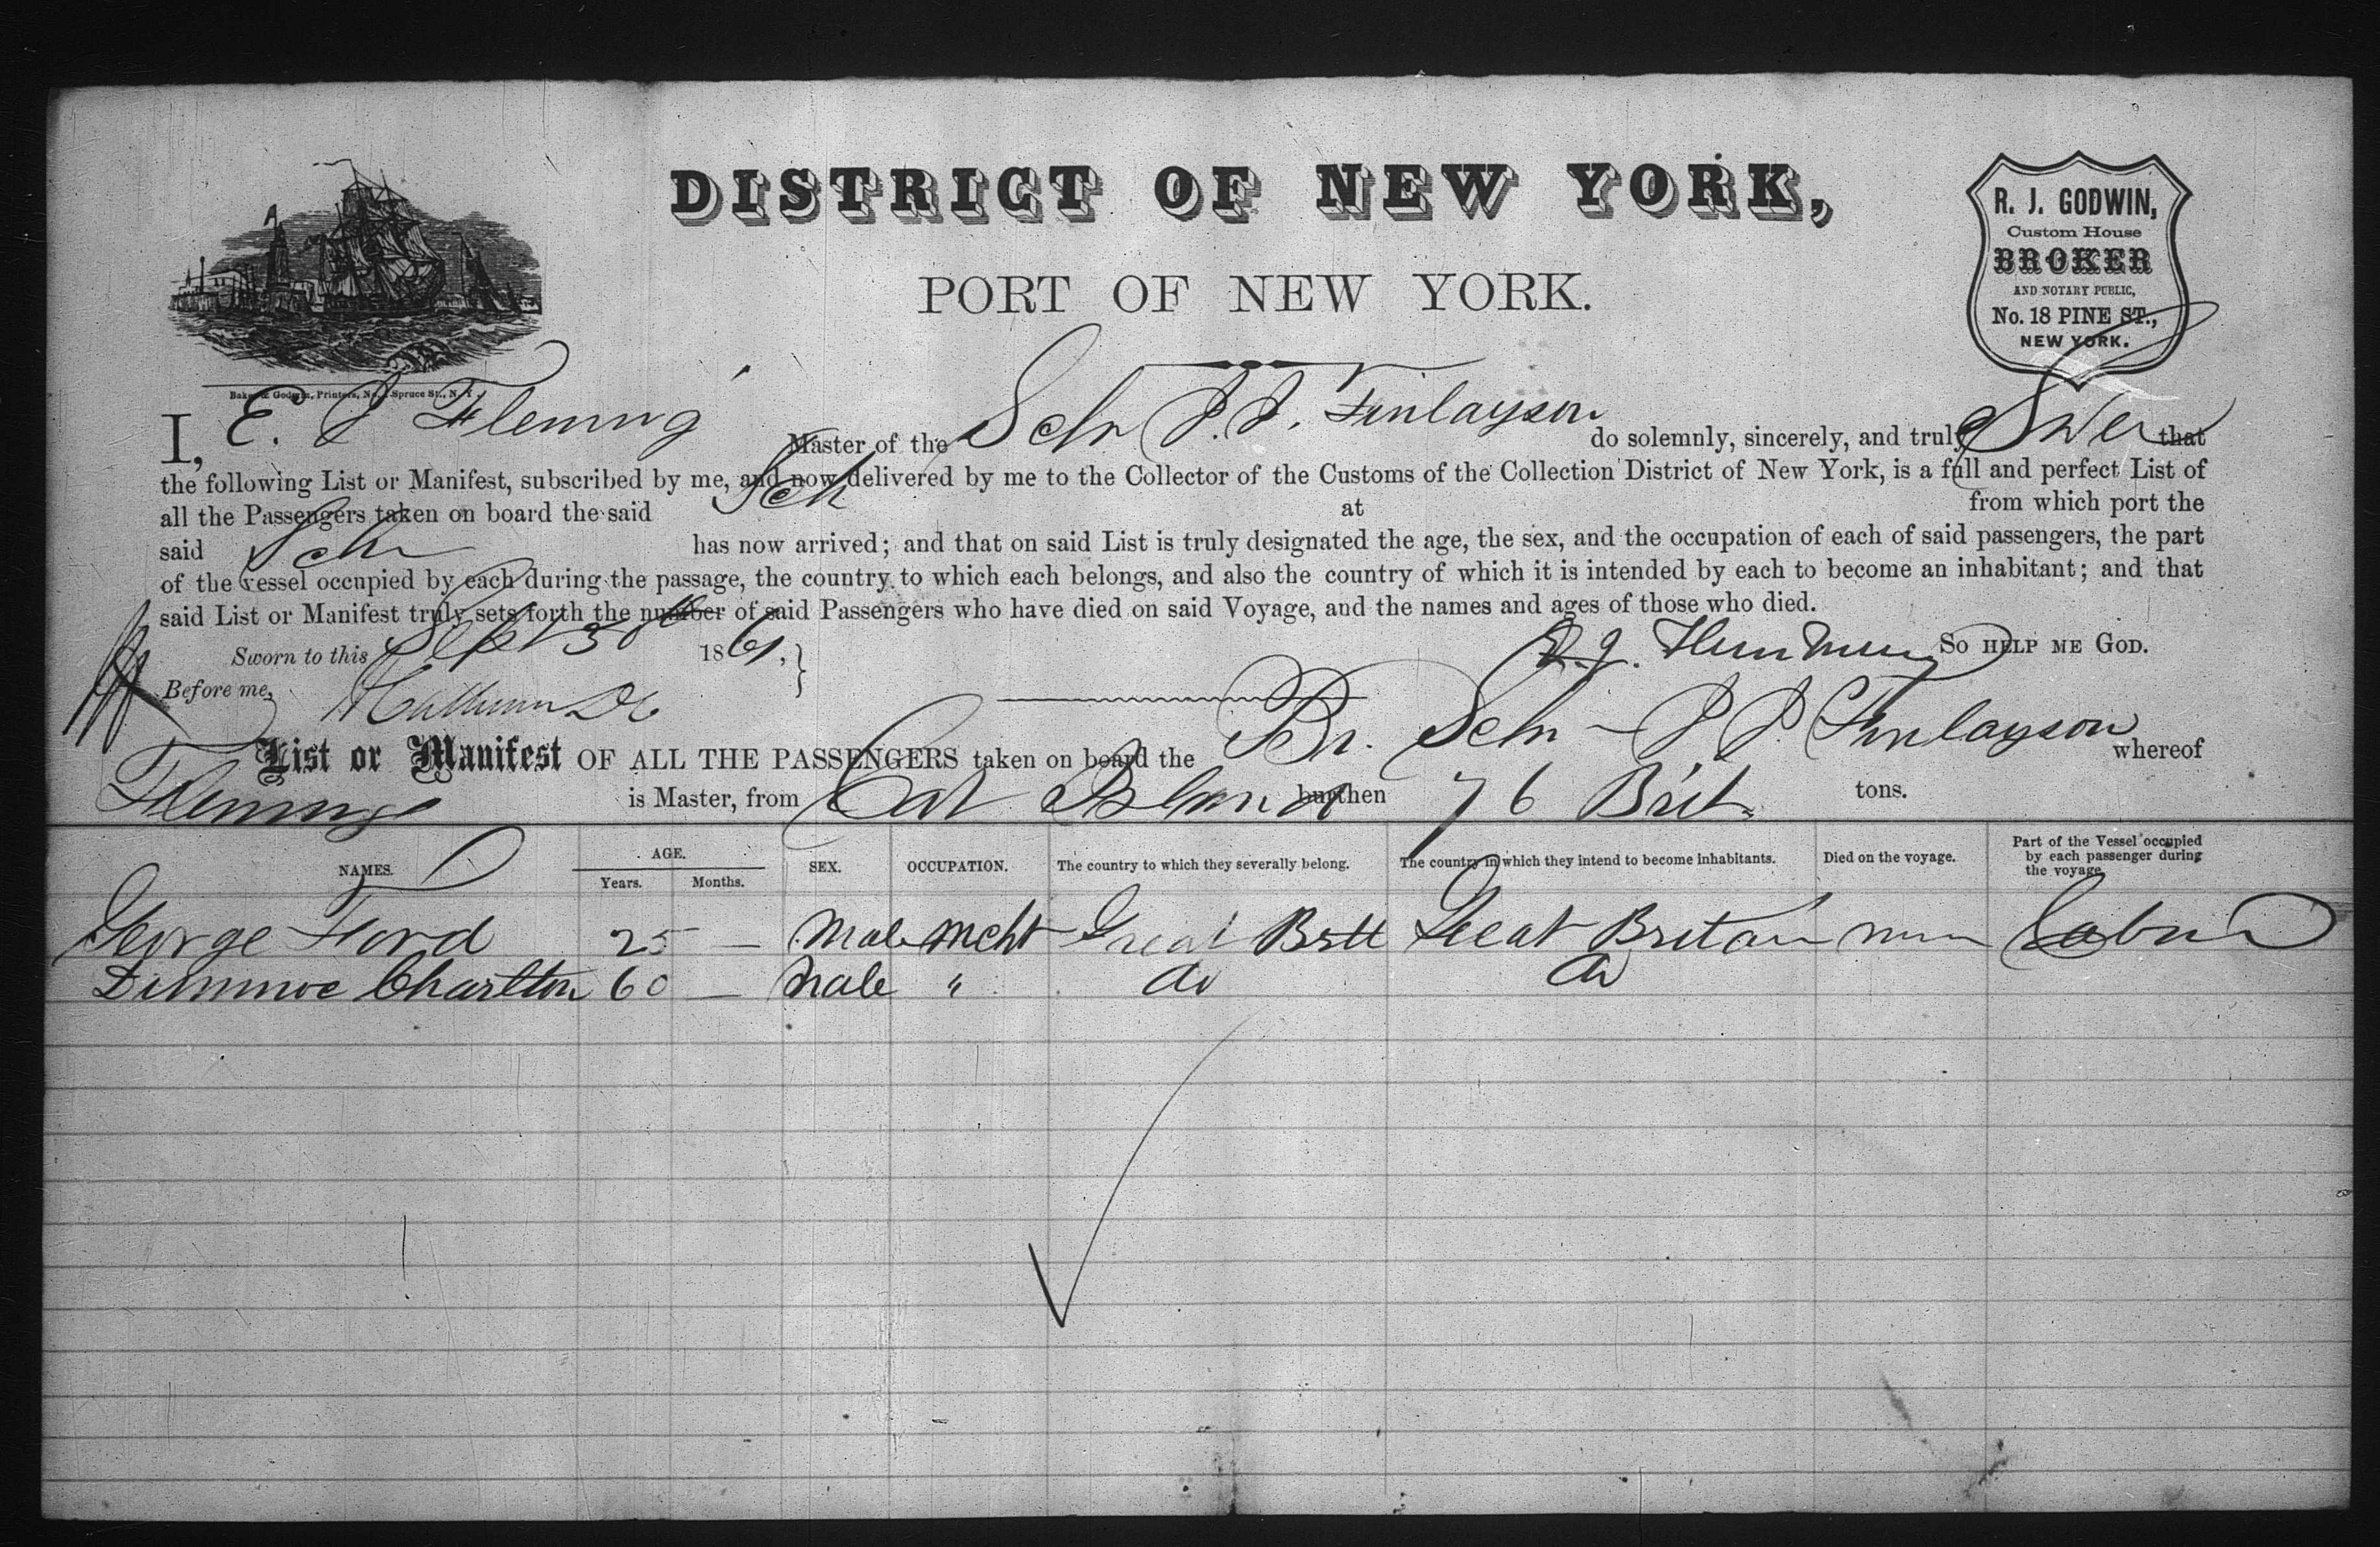 DISTRICT OF NEW YORK,
PORT OF NEW YORK.
R. J. GODWIN,
Custom House
BROKER
AND NOTARY PUBLIC,
No. 18 PINE ST.,
NEW YORK.
Baker & Godwin, Printers, No. 1 Spruce St., N. Y.
I, E. J Fleming Master of the Schr J. J. Finlayson do solemnly, sincerely, and truly Swear that
the following List or Manifest, subscribed by me, and now delivered by me to the Collector of the Customs of the Collection District of New York, is a full and perfect List of
all the Passengers taken on board the said Sch at from which port the
said Sch has now arrived; and that on said List is truly designated the age, the sex, and the occupation of each of said passengers, the part
of the vessel occupied by each during the passage, the country to which each belongs, and also the country of which it is intended by each to become an inhabitant; and that
said List or Manifest truly sets forth the number of said Passengers who have died on said Voyage, and the names and ages of those who died.
Sworn to this Sept 30 1861, So HELP ME GOD.
Before me,
List or Manifest OF ALL THE PASSENGERS taken on board the Br. Schr J J Finlayson whereof
Fleming is Master, from Cat Island burthen 76 Brit. tons.
NAMES. AGE. Years. Months. SEX. OCCUPATION. The country to which they severally belong. The country in which they intend to become inhabitants. Died on the voyage. Part of the Vessel occupied by each passenger during the voyage.
George Ford 25 — Male Mcht Great Britt Great Britain Cabin
Charlton 60 — Male " do do